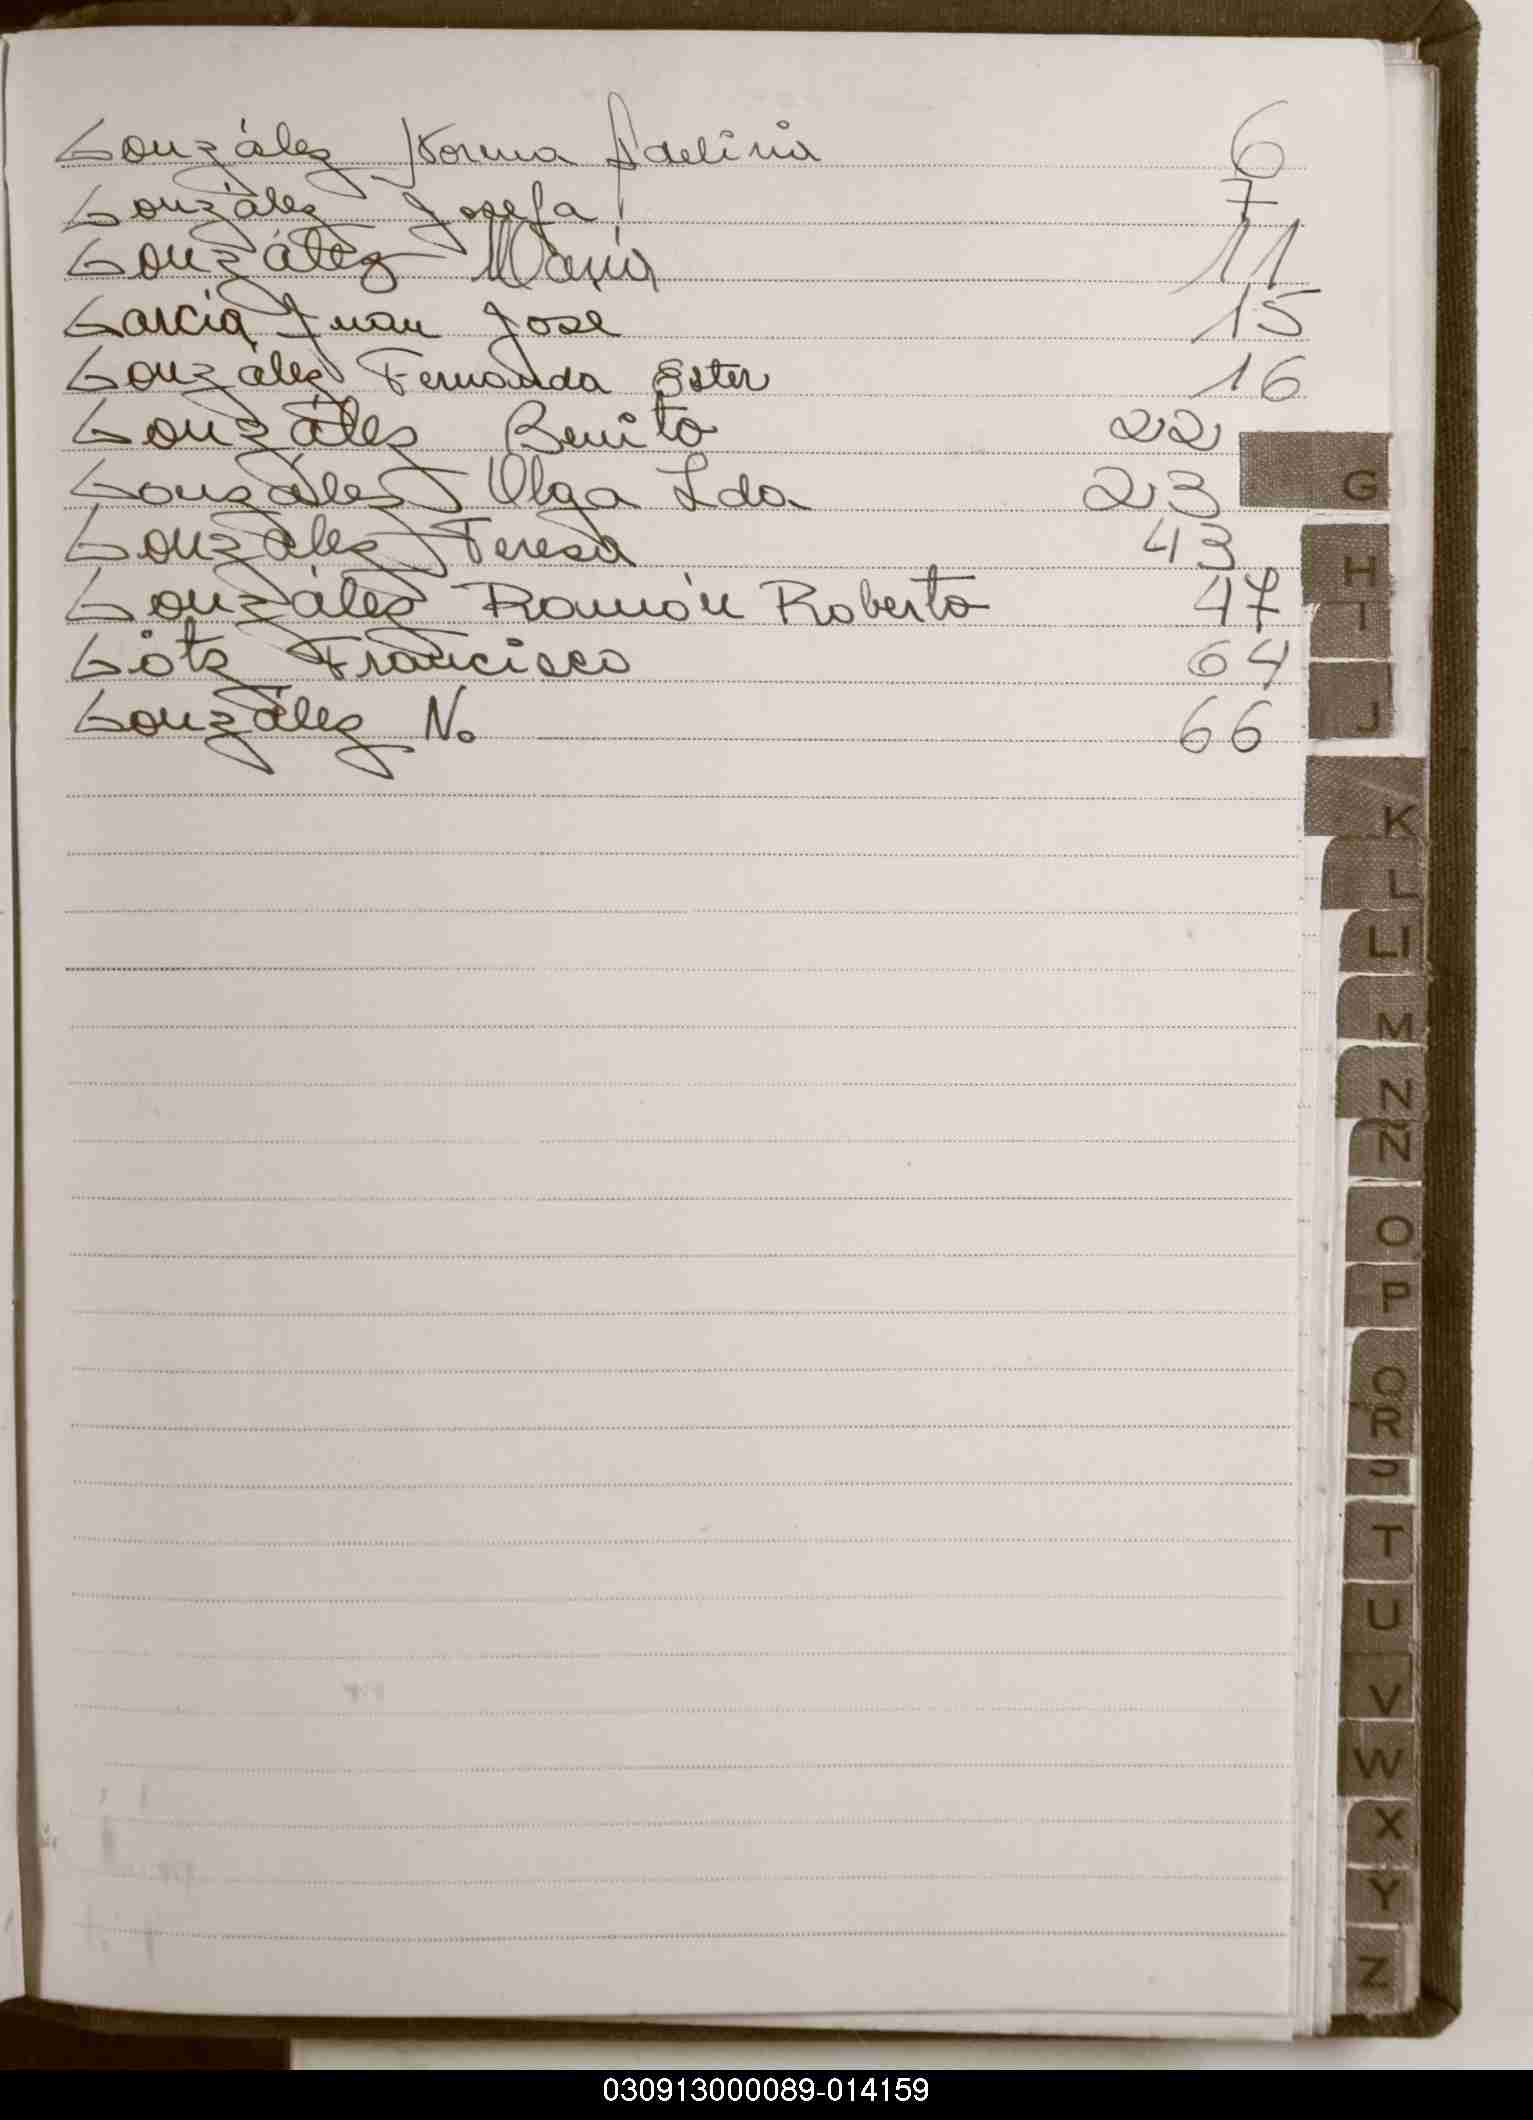 González Norma Adelina 6
González Josefa 7
González María 11
García Juan Jose 15
González Fernanda Ester 16
González Benito 22
González Olga Lda 23
González Teresa 43
González Ramón Roberto 47
Götz Francisco 64
González N. 66
G
H
I
J
K
L
Ll
M
N
Ñ
O
P
Q
R
S
T
U
V
W
X
Y
Z
030913000089-014159